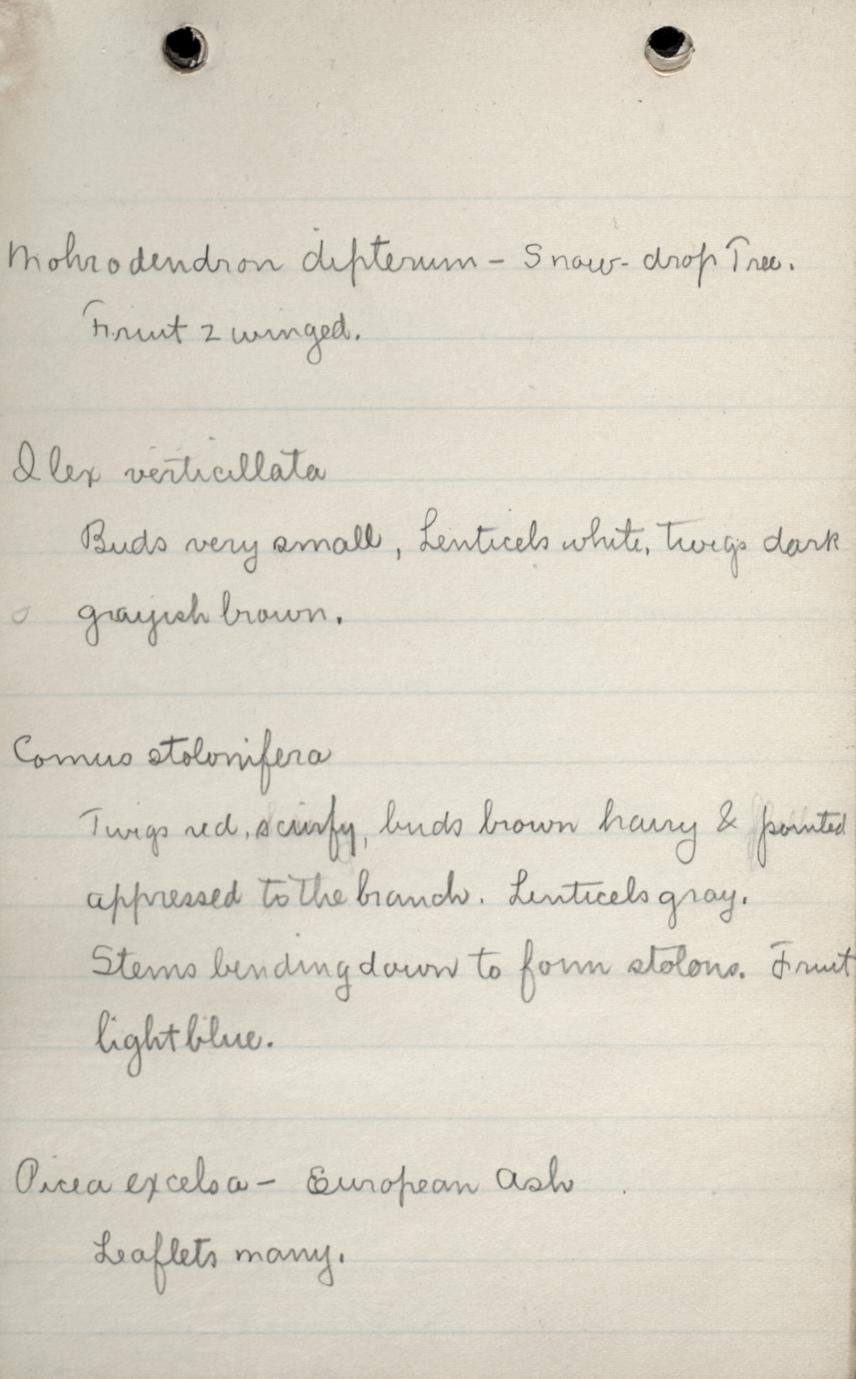 Mohrodendron dipterum - Snow-drop Tree.
Fruit 2 winged.
Ilex verticillata
Buds very small, Lenticels white, twigs dark
grayish brown.
Cornus stolonifera
Twigs red, scurfy, buds brown hairy & pointed
appressed to the branch. Lenticels gray.
Stems bending down to form stolons. Fruit
light blue.
Picea excelsa - European Ash
Leaflets many.